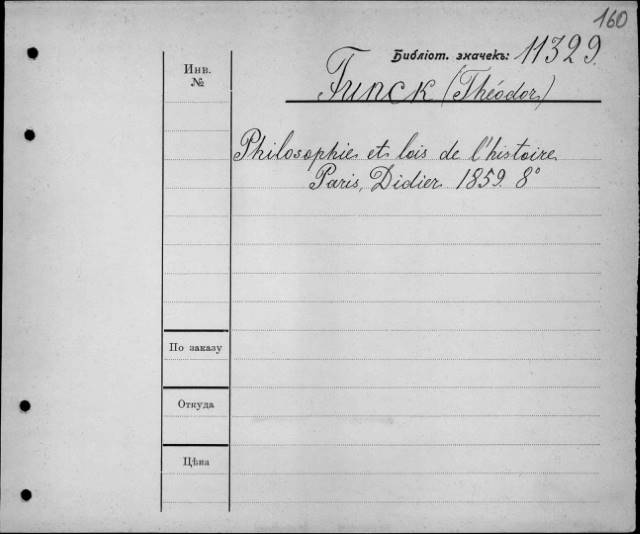 160
Библіот. значекъ: 11329.
Инв.
№
Funck (Théodor)
Philosophie et lois de l'histoire
Paris, Didier 1859. 8°
По заказу
Откуда
Цѣна